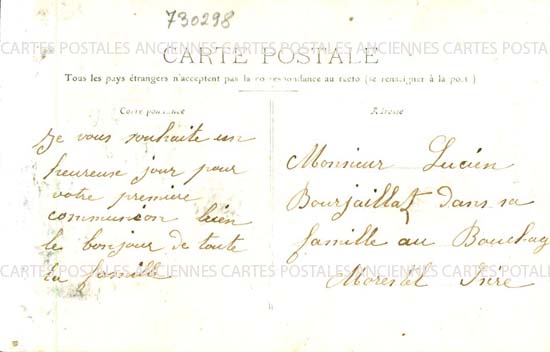 730298
CARTES POSTALES ANCIENNES CARTES POSTALES ANCIENNES CARTES POSTALES
CARTE POSTALE
Tous les pays étrangers n'acceptent pas la correspondance au recto (se renseigner à la poste)
Correspondance
Je vous souhaite un
heureuse jour pour
votre première
communcon bien
le bonjour de toute
la famille
Adresse
Monsieur Lucien
Bourjaillat dans sa
famille au Bouchag
Morestel Isère
CARTES POSTALES ANCIENNES CARTES POSTALES ANCIENNES CARTES POSTALES